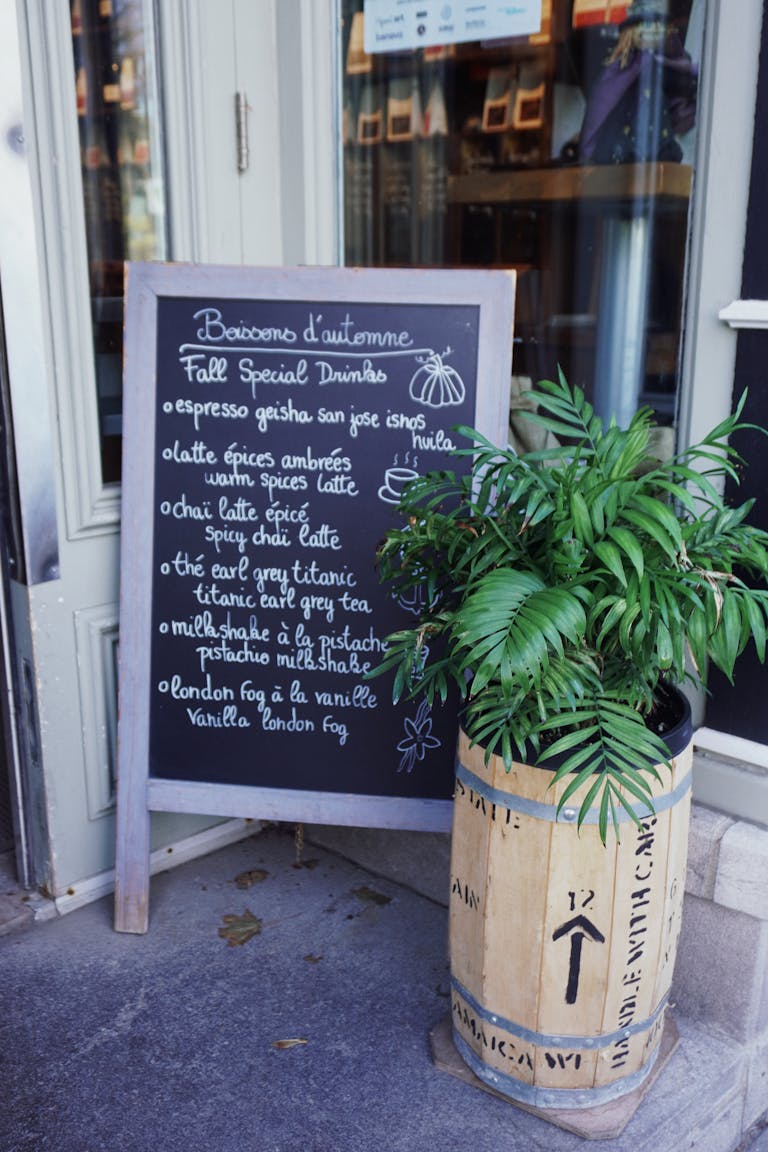 Boissons d'automne
Fall Special Drinks
espresso geisha san jose isnos
huila
latte épices ambrées
warm spices latte
chaï latte épicé
spicy chaï latte
thé earl grey titanic
titanic earl grey tea
milkshake à la pistache
pistachio milkshake
london fog à la vanille
Vanilla london fog
12
HANDLE WITH CAR
AMAICA